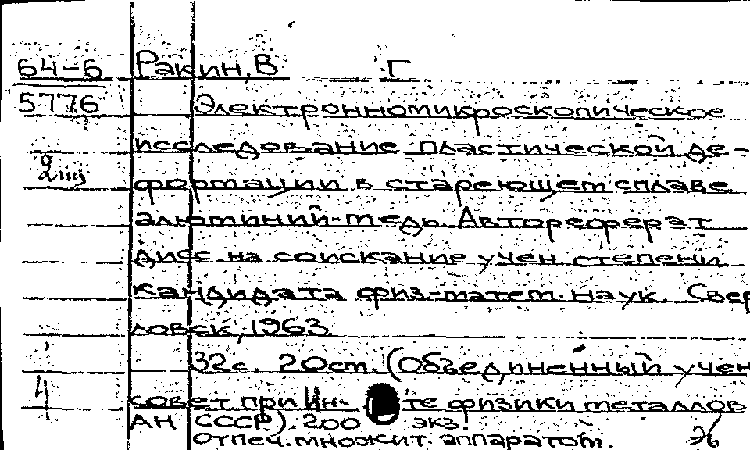 64-6 Ракин, В Г
5776 Электронномикроскопическое
исследование пластической де-
формации в стареющем сплаве
алюминий-медь. Автореферат
дисс. на соискание учен. степени
кандидата физ-матем. наук. Свер
ловск, 1963
32с. 20см. (Объединенный учен
4 совет при Ин-те физики металлов
АН СССР). 200 экз.
отпеч. множит. аппаратом. 26